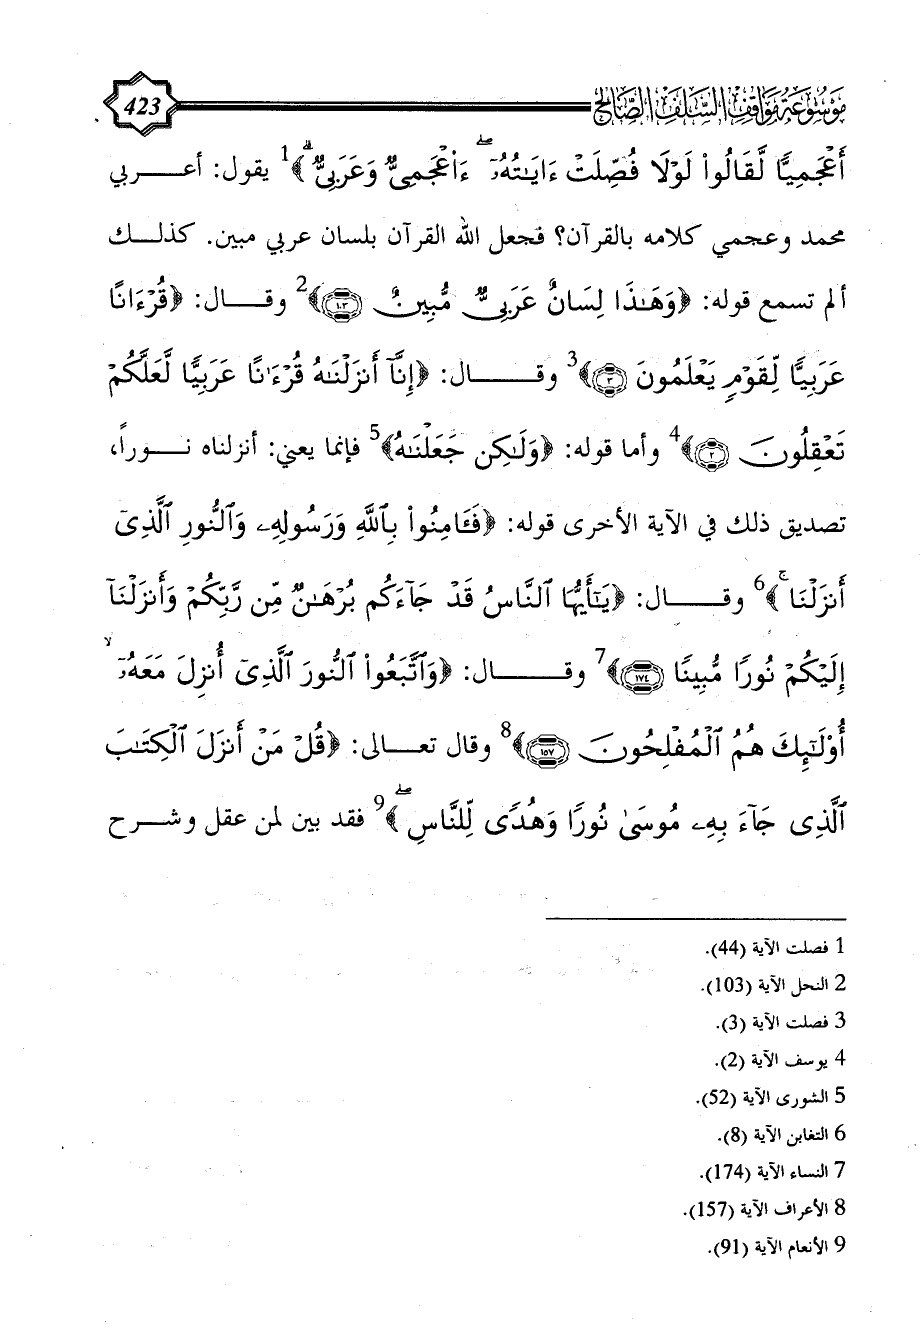 موسوعة مواقف السلف الصالح
423
أَعْجَمِيًّا لَّقَالُوا۟ لَوْلَا فُصِّلَتْ ءَايَـٰتُهُۥٓ ۖ ءَا۬عْجَمِىٌّ وَعَرَبِىٌّ ۗ﴾1 يقول: أعـربي
محمد وعجمي كلامه بالقرآن؟ فجعل الله القرآن بلسان عربي مبين. كذلـك
ألم تسمع قوله: ﴿وَهَـٰذَا لِسَانٌ عَرَبِىٌّ مُّبِينٌ ١٠٣﴾2 وقـال: ﴿قُرْءَانًا
عَرَبِيًّا لِّقَوْمٍ يَعْلَمُونَ ٣﴾3 وقـال: ﴿إِنَّآ أَنزَلْنَـٰهُ قُرْءَٰنًا عَرَبِيًّا لَّعَلَّكُمْ
تَعْقِلُونَ ٢﴾4 وأما قوله: ﴿وَلَـٰكِن جَعَلْنَـٰهُ﴾5 فإنما يعني: أنزلناه نـوراً،
تصديق ذلك في الآية الأخرى قوله: ﴿فَـَٔامِنُوا۟ بِٱللَّهِ وَرَسُولِهِۦ وَٱلنُّورِ ٱلَّذِىٓ
أَنزَلْنَا ۚ﴾6 وقـال: ﴿يَـٰٓأَيُّهَا ٱلنَّاسُ قَدْ جَآءَكُم بُرْهَـٰنٌ مِّن رَّبِّكُمْ وَأَنزَلْنَآ
إِلَيْكُمْ نُورًا مُّبِينًا ١٧٤﴾7 وقـال: ﴿وَٱتَّبَعُوا۟ ٱلنُّورَ ٱلَّذِىٓ أُنزِلَ مَعَهُۥٓ ۙ
أُو۟لَـٰٓئِكَ هُمُ ٱلْمُفْلِحُونَ ١٥٧﴾8 وقال تعـالى: ﴿قُلْ مَنْ أَنزَلَ ٱلْكِتَـٰبَ
ٱلَّذِى جَآءَ بِهِۦ مُوسَىٰ نُورًا وَهُدًى لِّلنَّاسِ ۖ﴾9 فقد بين لمن عقل وشـرح
1 فصلت الآية (44).
2 النحل الآية (103).
3 فصلت الآية (3).
4 يوسف الآية (2).
5 الشورى الآية (52).
6 التغابن الآية (8).
7 النساء الآية (174).
8 الأعراف الآية (157).
9 الأنعام الآية (91).